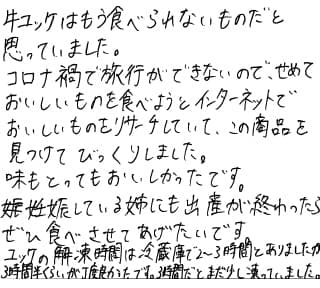 牛ユッケはもう食べられないものだと
思っていました。
コロナ禍で旅行ができないので、せめて
おいしいものを食べようとインターネットで
おいしいものをリサーチしていて、この商品を
見つけてびっくりしました。
味もとってもおいしかったです。
妊娠している姉にも出産が終わったら
ぜひ食べさせてあげたいです。
ユッケの解凍時間は冷蔵庫で2〜3時間とありましたが
3時間半くらいが丁度良かったです。3時間だとまだ少し凍っていました。